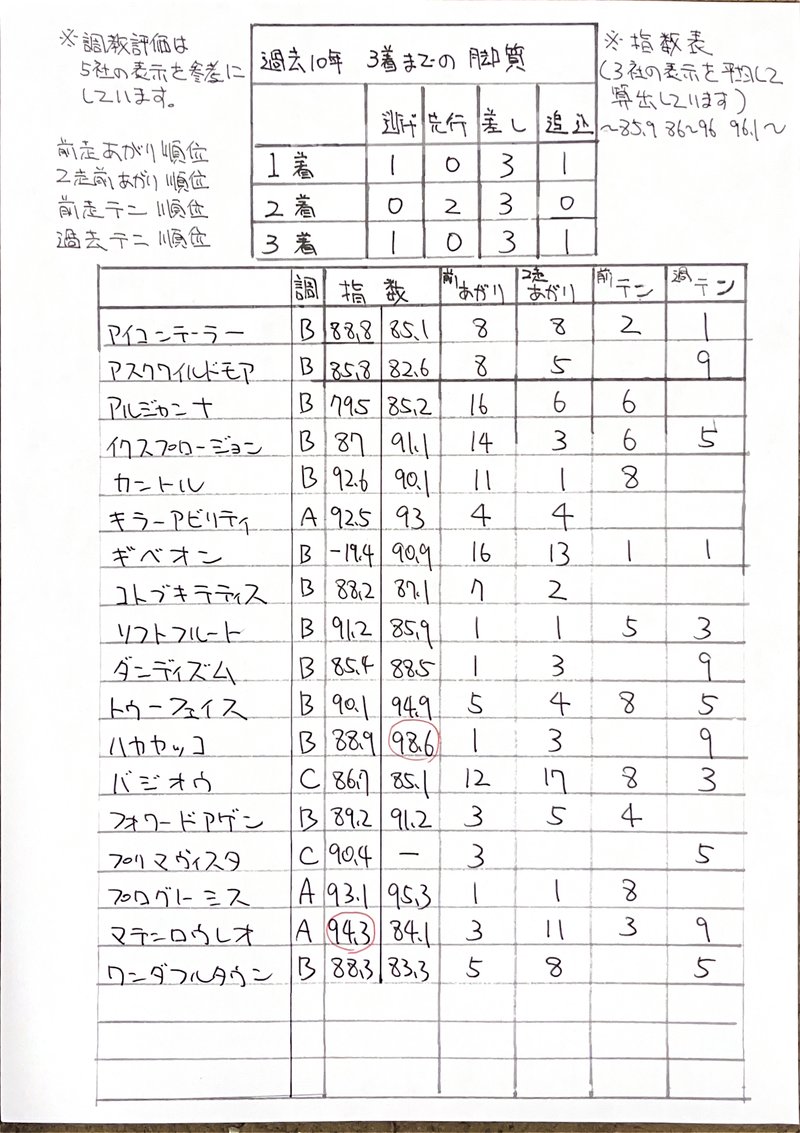 ※調教評価は
5社の表示を参考に
しています。
前走あがり順位
2走前あがり順位
前走テン順位
過去テン順位
過去10年 3着までの脚質
逃げ 先行 差し 追込
1着 1 0 3 1
2着 0 2 3 0
3着 1 0 3 1
※指数表
(3社の表示を平均して
算出しています)
～85.9 86～96 96.1～
調 指数 前あがり 2走あがり 前テン 過テン
アイコンテーラー B 88.8 85.1 8 8 2 1
アスクワイルドモア B 85.8 82.6 8 5 9
アルジャンナ B 79.5 85.2 16 6 6
イクスプロージョン B 87 91.1 14 3 6 5
カントル B 92.6 90.1 11 1 8
キラーアビリティ A 92.5 93 4 4
ギベオン B -19.4 90.9 16 13 1 1
コトブキテティス B 88.2 87.1 7 2
ソフトフルート B 91.2 85.9 1 1 5 3
ダンディズム B 85.4 88.5 1 3 9
トゥーフェイス B 90.1 94.9 5 4 8 5
ハヤヤッコ B 88.9 98.6 1 3 9
バジオウ C 86.7 85.1 12 17 8 3
フォワードアゲン B 89.2 91.2 3 5 4
プリマヴィスタ C 90.4 － 3 5
プログノーシス A 93.1 95.3 1 1 8
マテンロウレオ A 94.3 84.1 3 11 3 9
ワンダフルタウン B 88.3 83.3 5 8 5